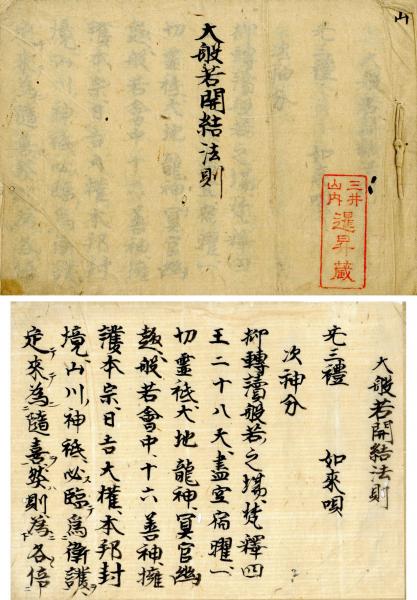 山
大般若開結法則
三井
山内
暹昇蔵
大般若開結法則
先三禮　如来唄
次神分
抑轉讀般若之場梵釋四
王二十八天盡空宿曜一
切霊祇大地龍神冥官幽
趣般若會中十六善神擁
護本宗日吉大權本邦封
境山川神祇必臨為衛護
定来為隨喜然則為各倍